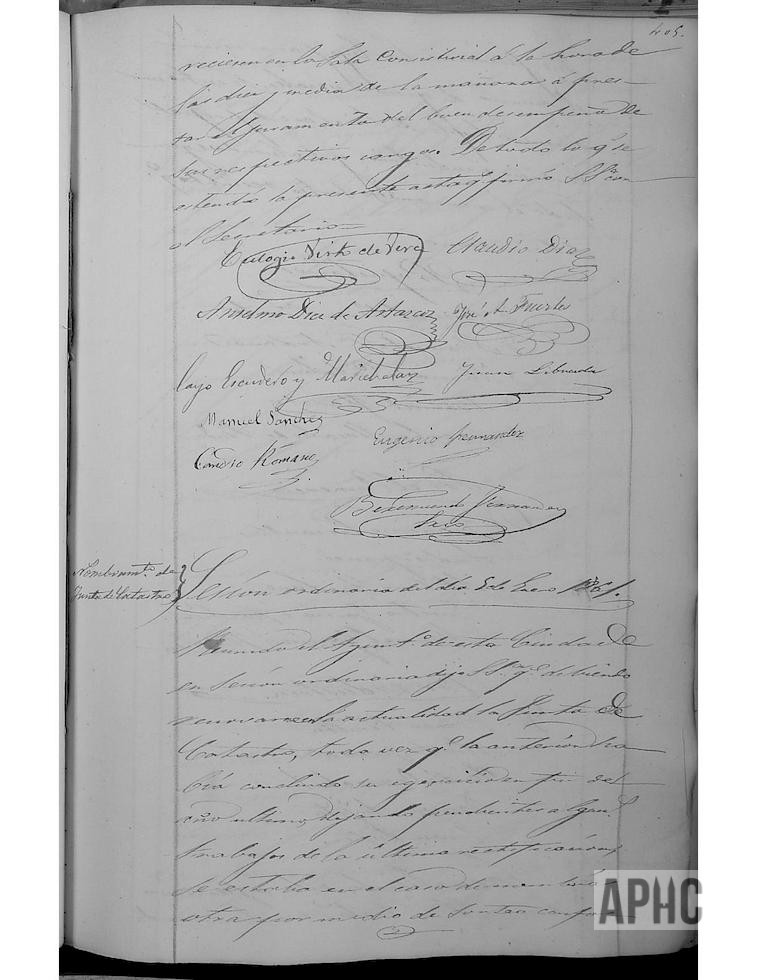 405.
recieren en la Sala Consistorial á la hora de
las diez y media de la mañana á pres-
tar el juramento del buen desempeño de
sus respectivos cargos. De todo lo q.e se
estendió la presente acta q.e firmó S.Sª con
el Secretario—
Eulogio Claudio Diaz
Anselmo Dice de José A. Fuertes
Cayo Escudero y Marichalar Juan
Manuel Sanchez Eugenio Fernandez
Romano
Fernandez
Nombramto. de
Junta de Catastro
Sesión ordinaria del día 5 de Enero 1861.
Reunido el Ayunto. de esta Ciudad
en Sesión ordinaria dijo S.Sª q.e debiendo
renovarse en la actualidad la Junta de
Catastro, toda vez q.e la anterior ha
bía concluido su egercicio en fin del
año ultimo, dejando pendientes algun.s
trabajos de la última rectificación,
se estaba en el caso de nombrar
otra por medio de
APHC